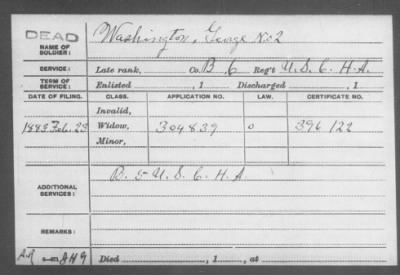 DEAD
NAME OF SOLDIER:
Washington, George No2
SERVICE:
Late rank, Co. B 6 Reg't U.S.C.H.A.
TERM OF SERVICE:
Enlisted , 1 Discharged , 1
DATE OF FILING. CLASS. APPLICATION NO. LAW. CERTIFICATE NO.
Invalid,
1883 Feb. 23 Widow, 304839 0 396122
Minor,
ADDITIONAL SERVICES:
B. 5 U.S.C.H.A
REMARKS:
Died , 1 , at